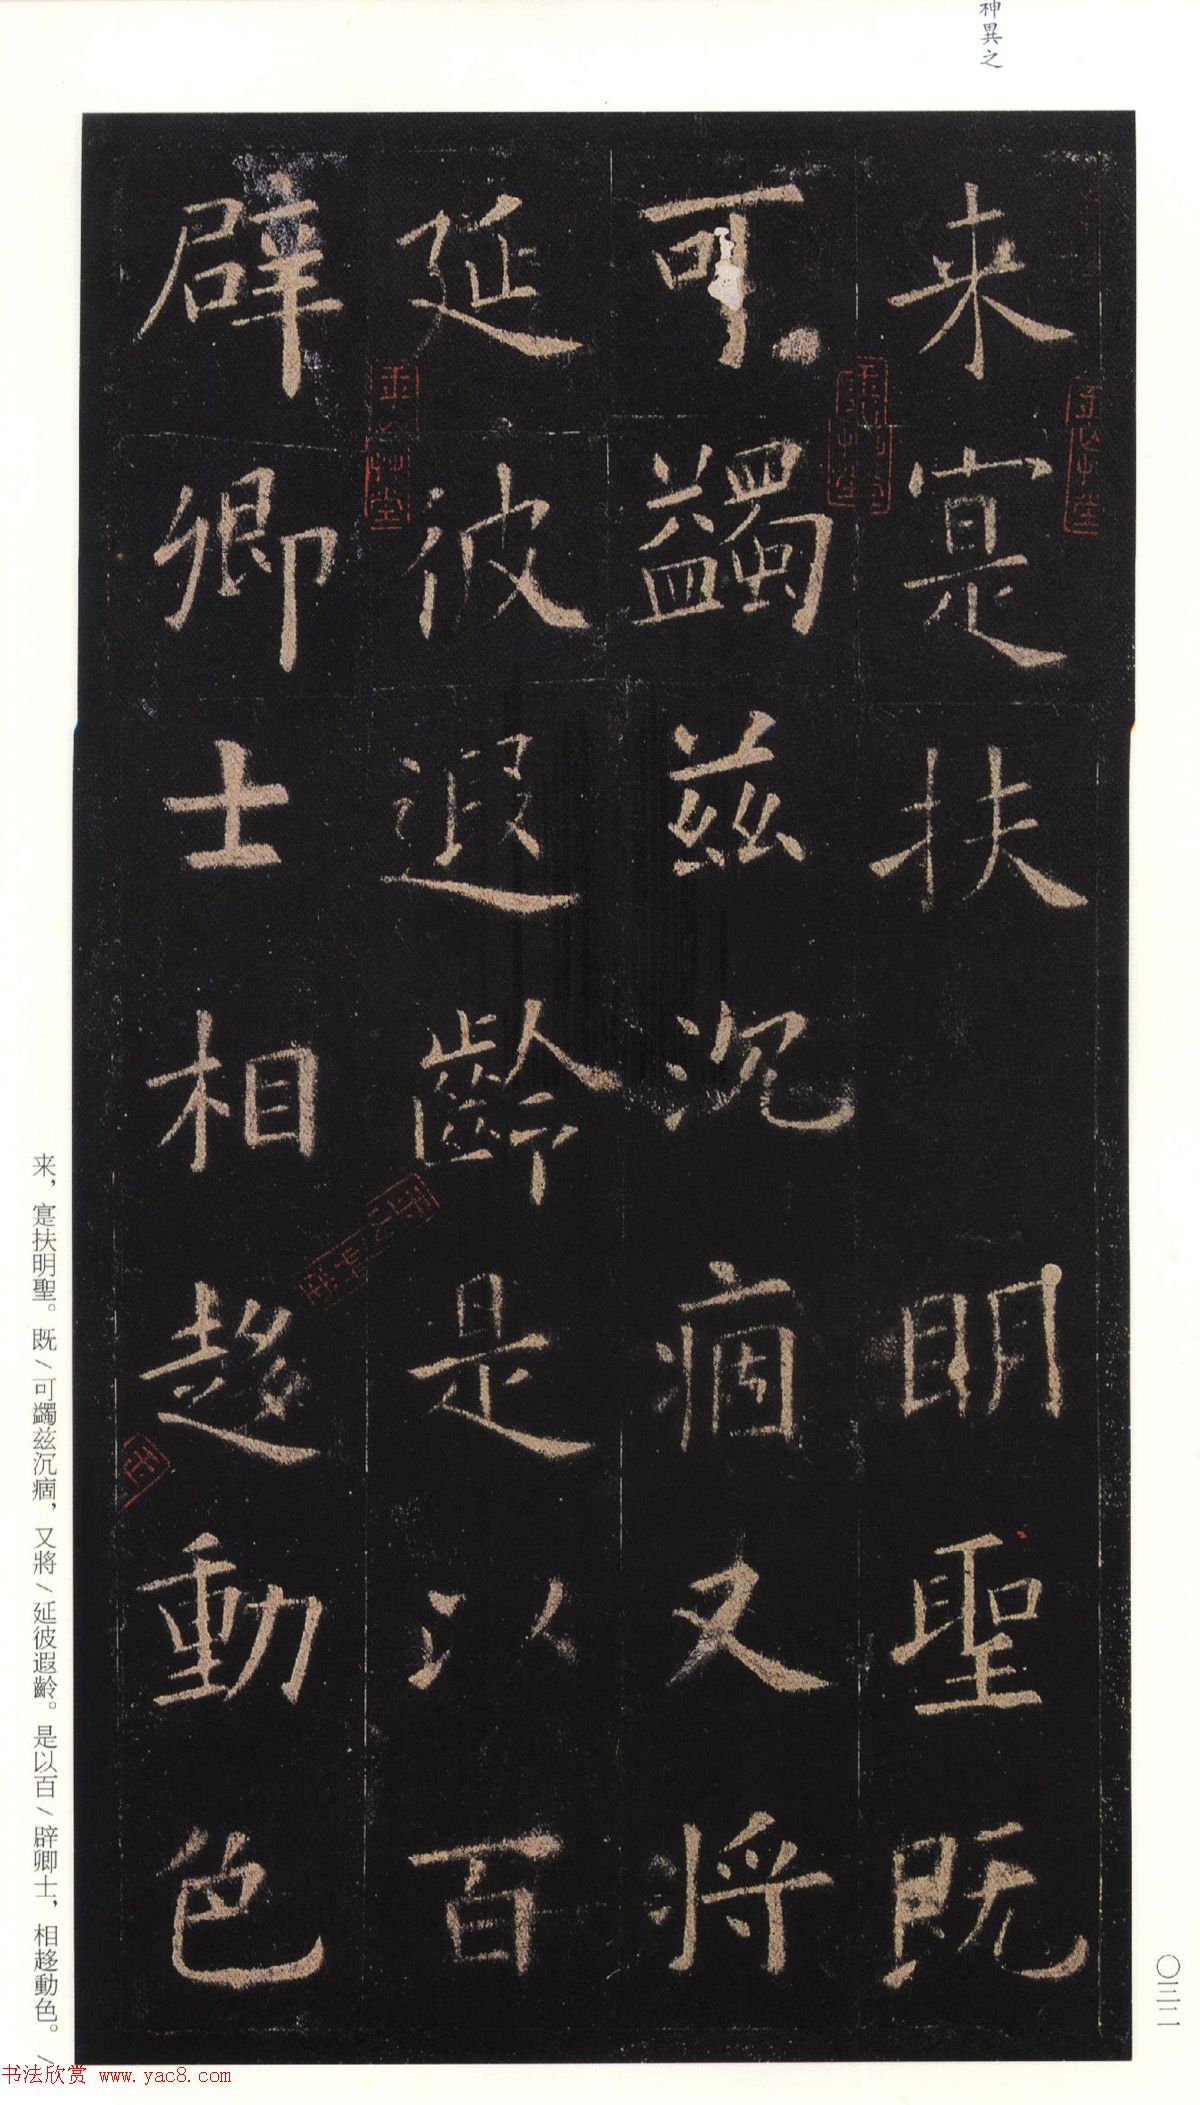 神異之
来寔扶明聖既
可蠲兹沉痼又将
延彼遐齡是以百
辟卿士相趍動色
来，寔扶明聖。既/可蠲兹沉痼，又將/延彼遐齡。是以百/辟卿士，相趍動色。/
〇三二
书法欣赏 www.yac8.com